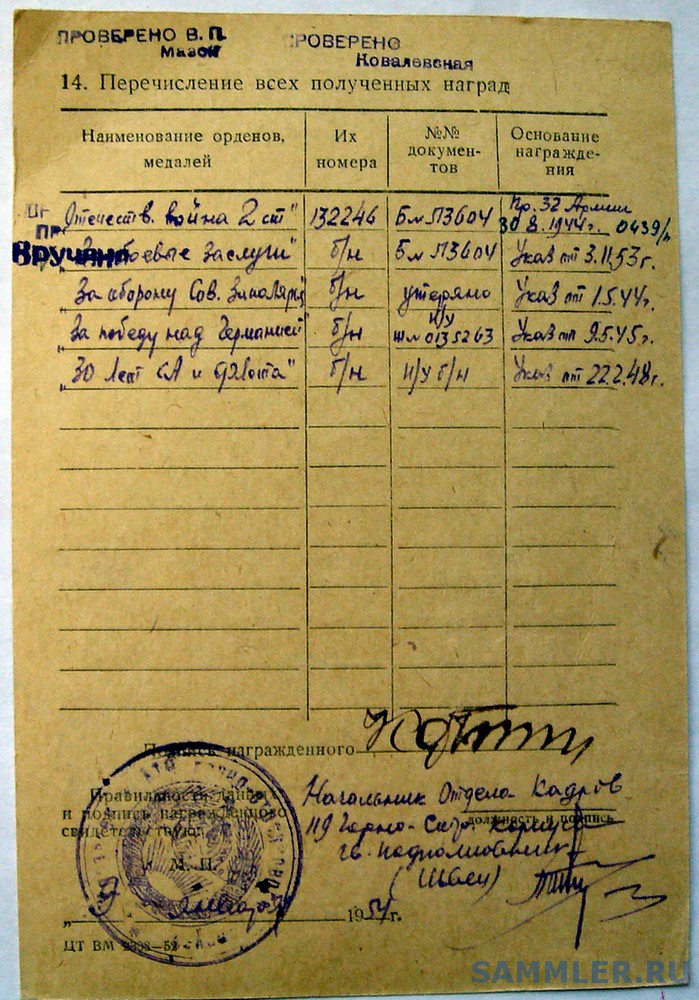 ПРОВЕРЕНО В. П.
Мазой
ПРОВЕРЕНО
Ковалевская
14. Перечисление всех полученных наград
Наименование орденов, медалей
Их номера
№№ документов
Основание награждения
„Отечеств. война 2 ст" 132246 Б № Л3604 Пр. 32 Армии 30.8.1944г. 0439/н
Вручена
„За боевые заслуги" б/н Б № Л3604 Указ от 3.11.53г.
„За оборону Сов. Заполярья" б/н утеряно Указ от 1.5.44г.
„За победу над Германией" б/н н/у Ш № 0135263 Указ от 9.5.45г.
„30 лет СА и Флота" б/н н/у б/н Указ от 22.2.48г.
Подпись награжденного
Правильность данных
и подпись награжденного
свидетельствую:
Начальник Отдела Кадров
должность и подпись
119 Горно-Стр. Корпуса
гв. подполковник
(Швец)
М. П.
„9" Января 1954г.
ЦТ ВМ 2308—52
SAMMLER.RU